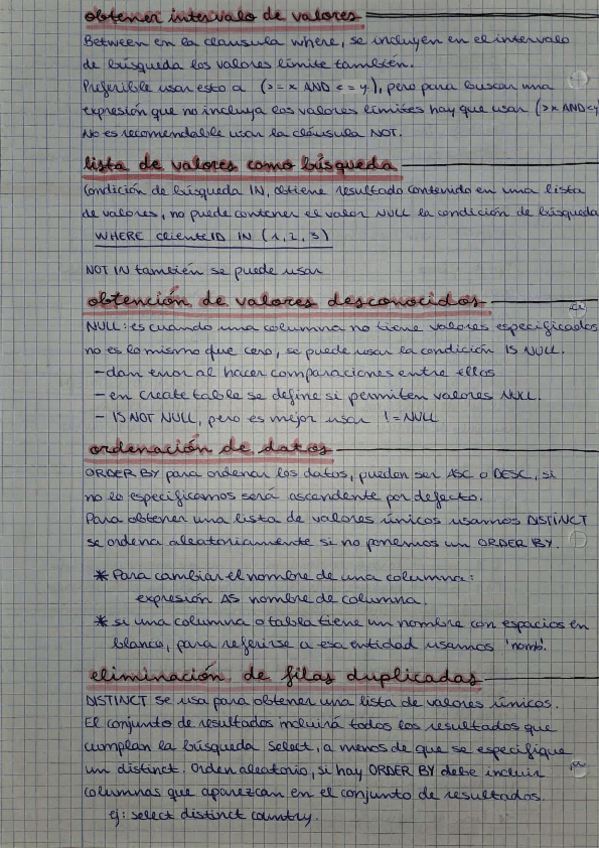 obtener intervalo de valores
Between en la clausula where, se incluyen en el intervalo
de búsqueda los valores límite también.
Preferible usar esto a (>= x AND <= y), pero para buscar una
expresión que no incluya los valores límites hay que usar (>x AND <y)
No es recomendable usar la cláusula NOT.
lista de valores como búsqueda
Condición de búsqueda IN, obtiene resultado contenido en una lista
de valores, no puede contener el valor NULL la condición de búsqueda
WHERE clienteID IN (1, 2, 3)
NOT IN también se puede usar
obtención de valores desconocidos
NULL: es cuando una columna no tiene valores especificados
no es lo mismo que cero, se puede usar la condición IS NULL.
- dan error al hacer comparaciones entre ellos
- en create table se define si permiten valores NULL.
- IS NOT NULL, pero es mejor usar != NULL
ordenación de datos
ORDER BY para ordenar los datos, pueden ser ASC o DESC, si
no lo especificamos será ascendente por defecto.
Para obtener una lista de valores únicos usamos DISTINCT
se ordena aleatoriamente si no ponemos un ORDER BY.
* Para cambiar el nombre de una columna:
expresión AS nombre de columna.
* si una columna o tabla tiene un nombre con espacios en
blanco, para referirse a esa entidad usamos 'nomb'.
eliminación de filas duplicadas
DISTINCT se usa para obtener una lista de valores únicos.
El conjunto de resultados incluirá todos los resultados que
cumplan la búsqueda select, a menos de que se especifique
un distinct. Orden aleatorio, si hay ORDER BY debe incluir
columnas que aparezcan en el conjunto de resultados.
ej: select distinct country.